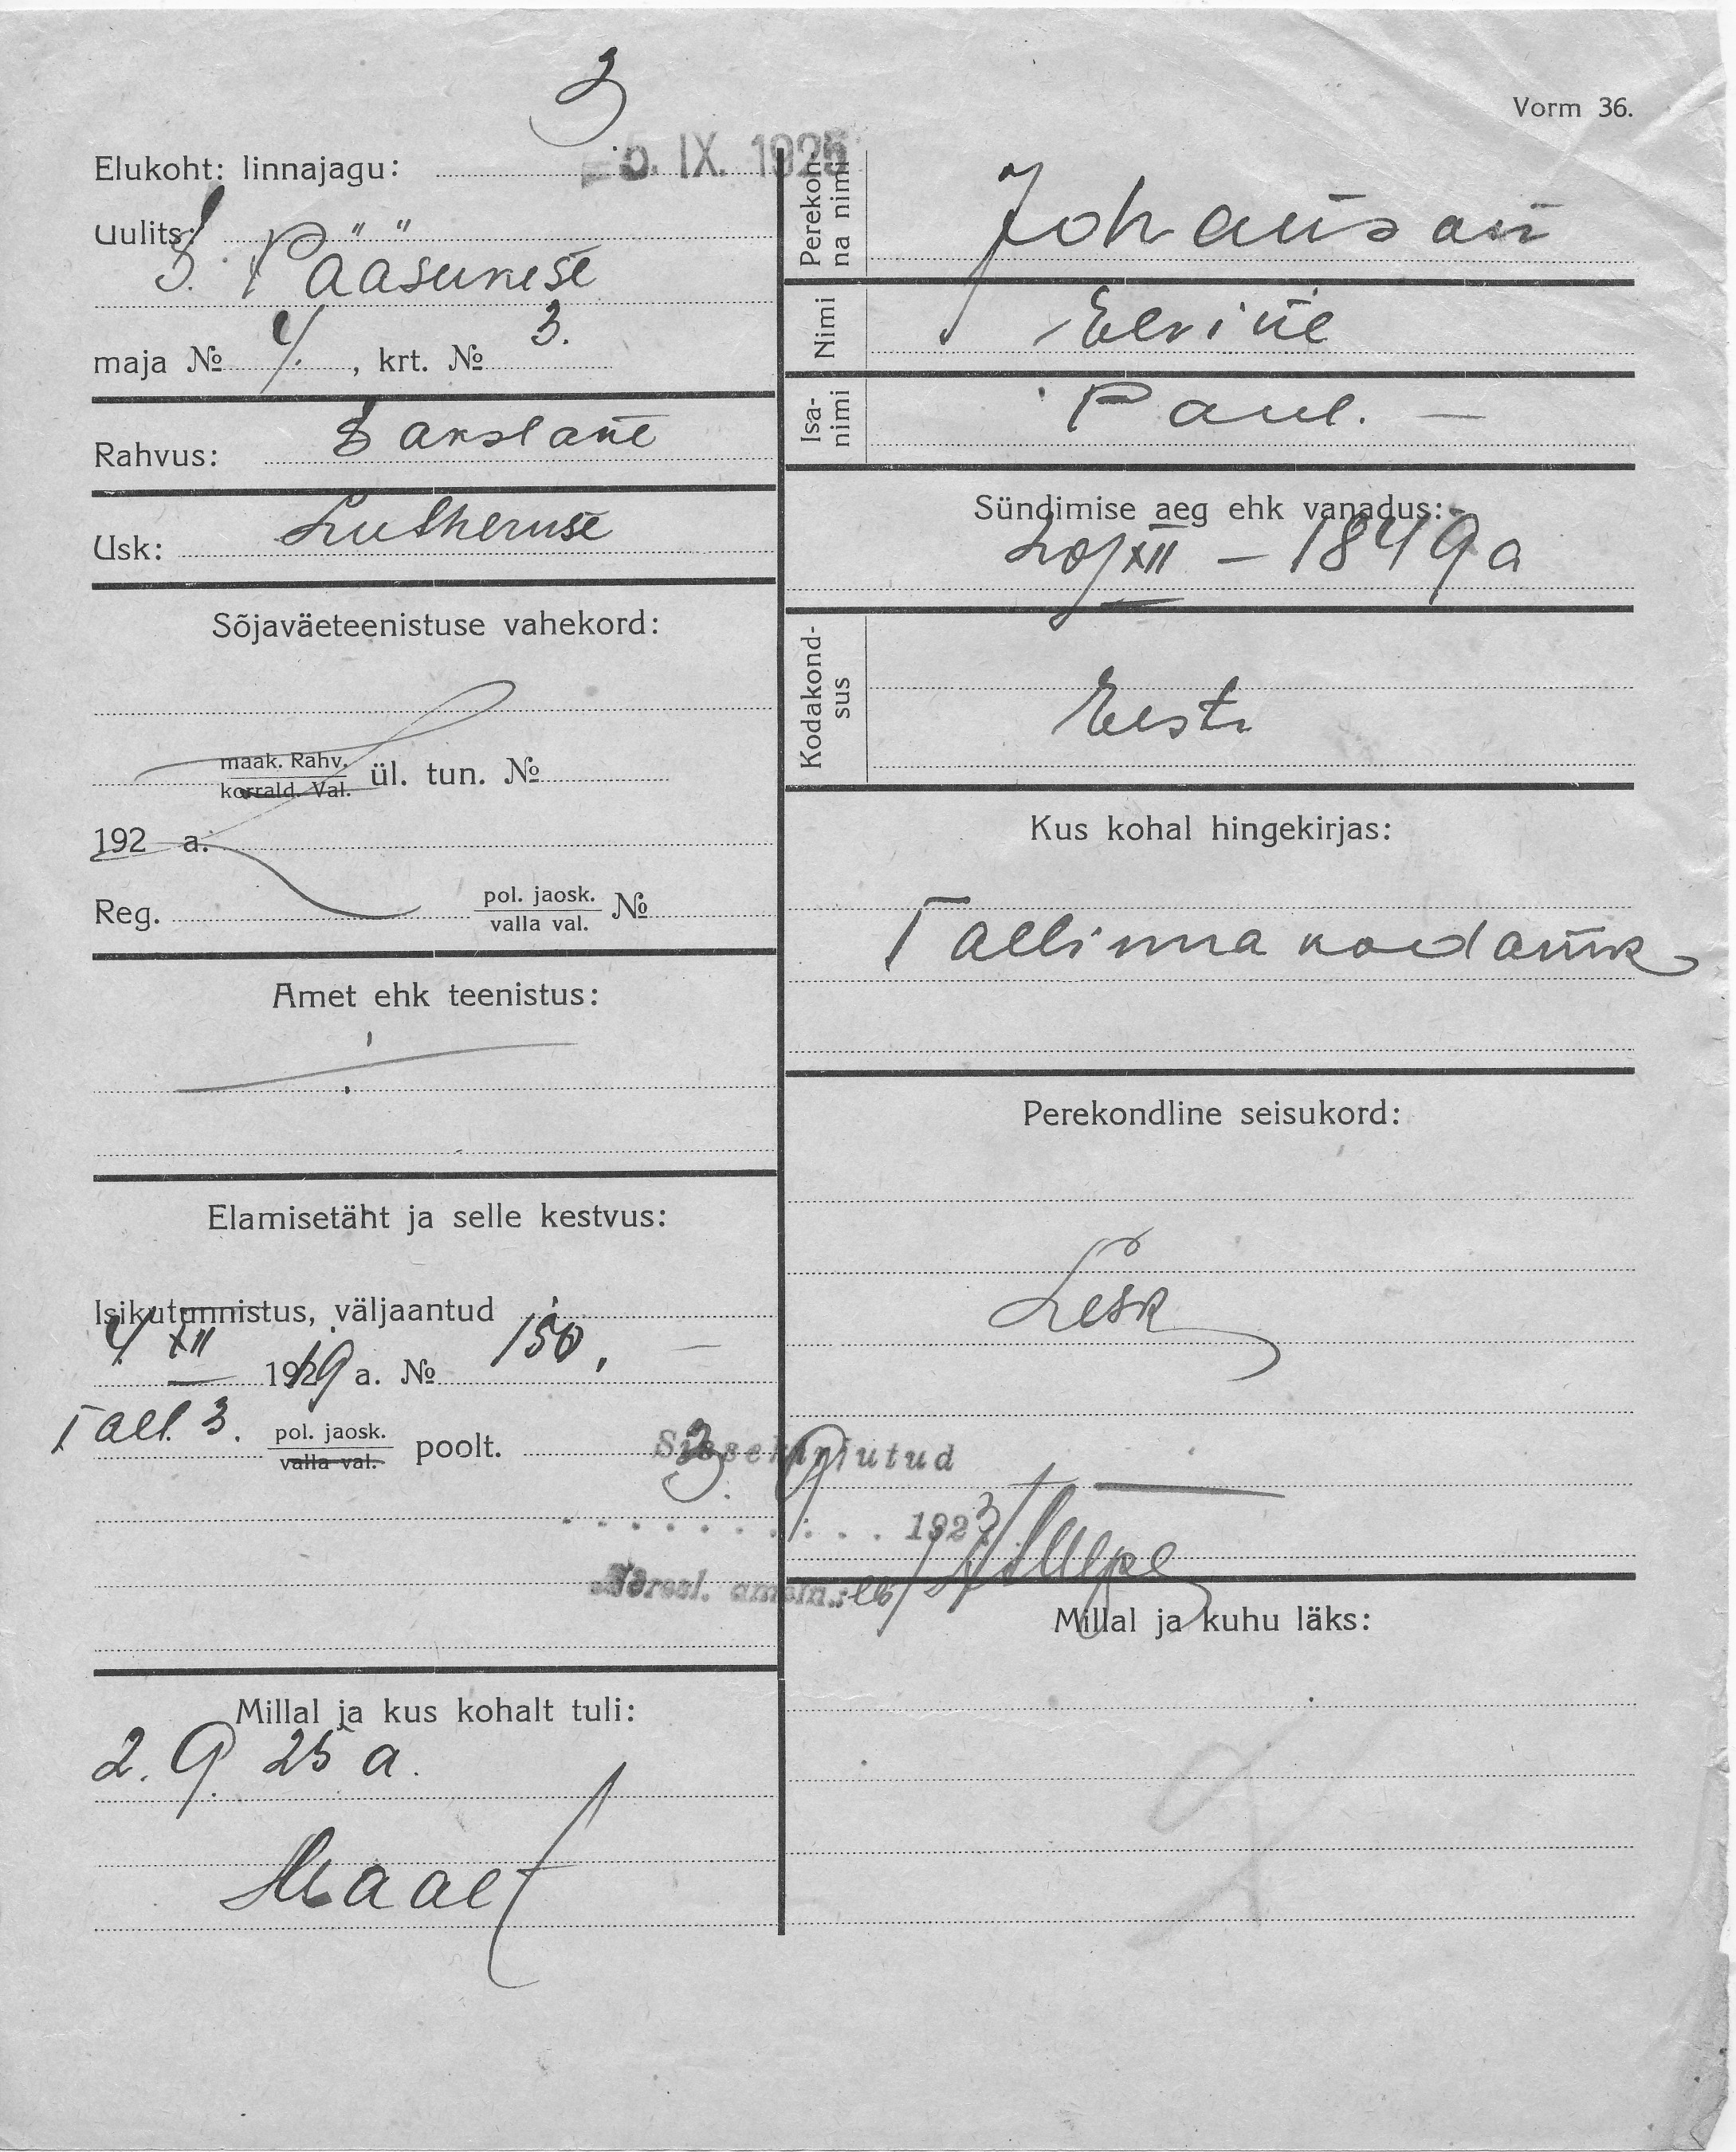 3
Vorm 36.
5. IX. 1925
Elukoht: linnajagu:
Uulits:
S. Pääsukese
maja № 4. , krt. № 3.
Rahvus: Sakslane
Usk: Lutheruse
Sõjaväeteenistuse vahekord:
maak. Rahv.
korrald. Val. ül. tun. №
192 a.
Reg. pol. jaosk.
valla val. №
Amet ehk teenistus:
Elamisetäht ja selle kestvus:
Isikutunnistus, väljaantud
4 XII 1919 a. № 150.
Tall. 3. pol. jaosk.
valla val. poolt.
Millal ja kus kohalt tuli:
2. 9. 25 a.
Maalt
Perekon-
na nimi
Johanson
Nimi
Eevine
Isa-
nimi
Paul. —
Sündimise aeg ehk vanadus:
20/XII – 1849 a
Kodakond-
sus
Eesti
Kus kohal hingekirjas:
Tallinna kodanik
Perekondline seisukord:
Lesk
Sissekirjutud
3. 9
192
Millal ja kuhu läks: